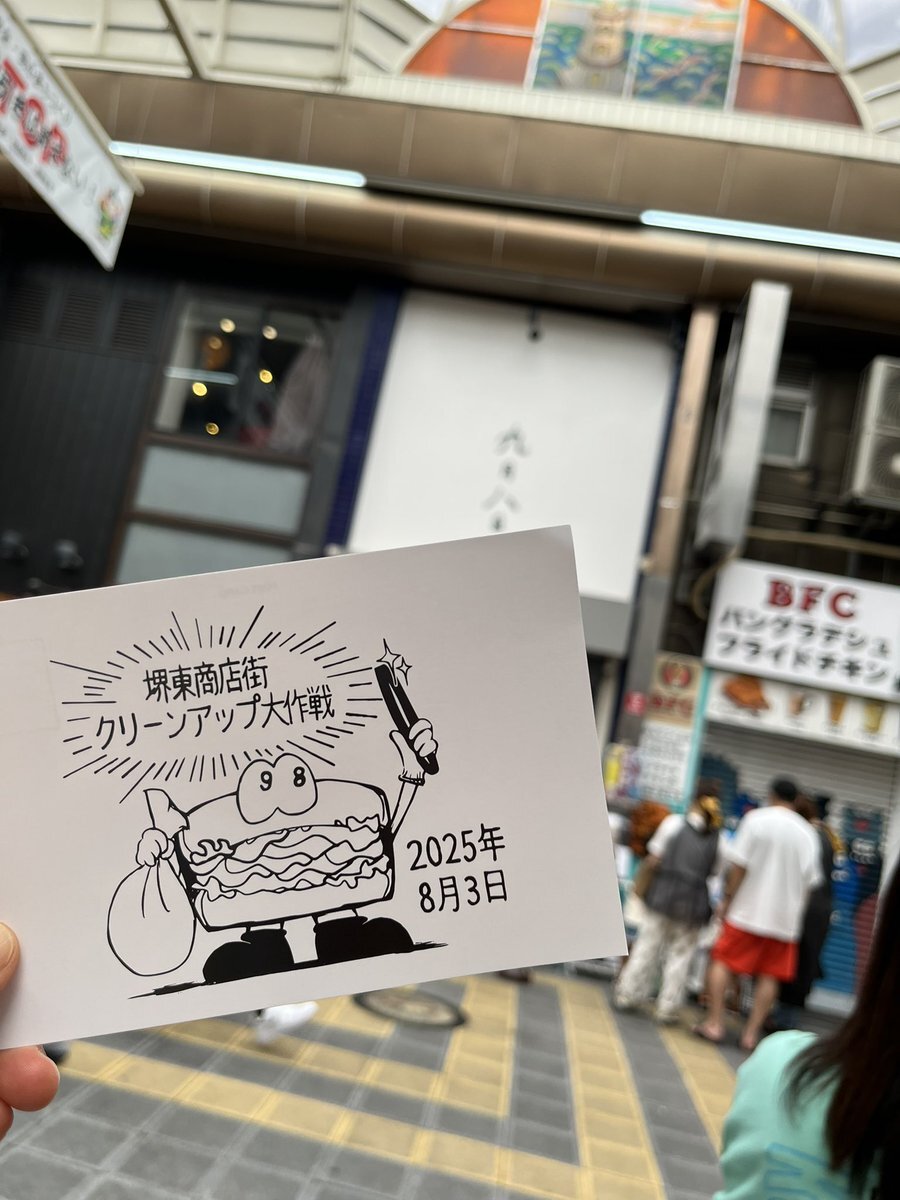 堺東商店街
クリーンアップ大作戦
98
2025年
8月3日
BFC
バングラデシュ
フライドチキン